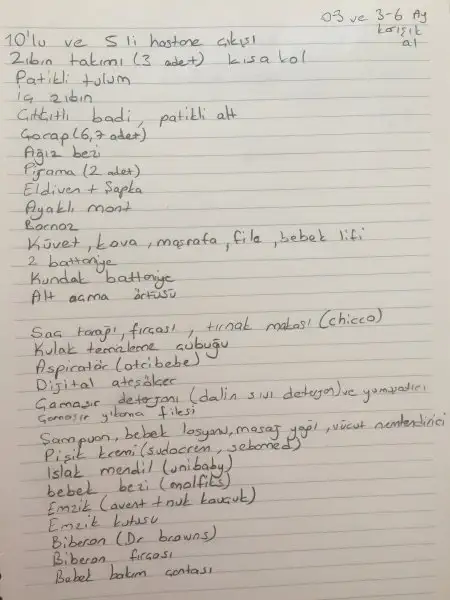 03 ve 3-6 Ay
karışık
al
10'lu ve 5 li hastane çıkışı
Zıbın takımı (3 adet) kısa kol
Patikli tulum
iç zıbın
Çıtçıtlı badi, patikli alt
Çorap (6,7 adet)
Ağız bezi
Pijama (2 adet)
Eldiven + Şapka
Ayaklı mont
Bornoz
Küvet, kova, maşrafa, file, bebek lifi
2 battaniye
Kundak battaniye
Alt açma örtüsü
Saç tarağı, fırçası, tırnak makası (chicco)
Kulak temizleme çubuğu
Aspiratör (otribebe)
Dijital ateşölçer
Çamaşır deterjanı (dalin sıvı deterjan) ve yumuşatıcı
Çamaşır yıkama filesi
Şampuan, bebek losyonu, masaj yağı, vücut nemlendirici
Pişik kremi (sudocrem, sebamed)
Islak mendil (unibaby)
bebek bezi (molfiks)
Emzik (avent + nuk kauçuk)
Emzik kutusu
Biberon (Dr browns)
Biberon fırçası
Bebek bakım çantası